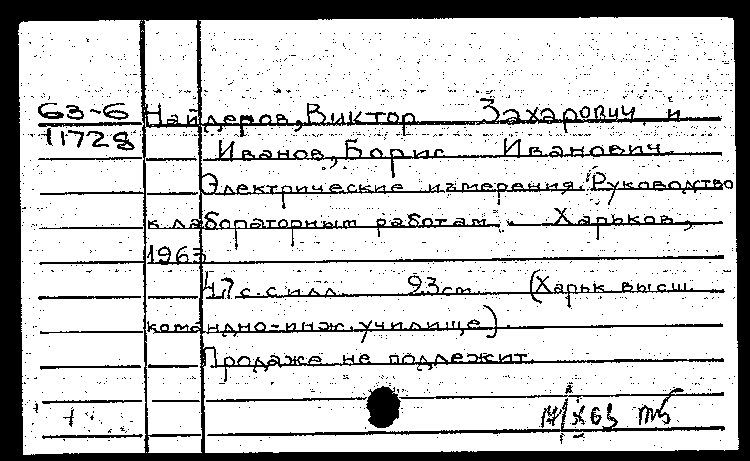 63-6 Найдеров, Виктор Захарович и
11728 Иванов, Борис Иванович.
Электрические измерения. Руководство
к лабораторным работам. Харьков,
1963.
47 с. с илл. 23 см. (Харьк высш.
командно-инж. училище).
Продаже не подлежит.